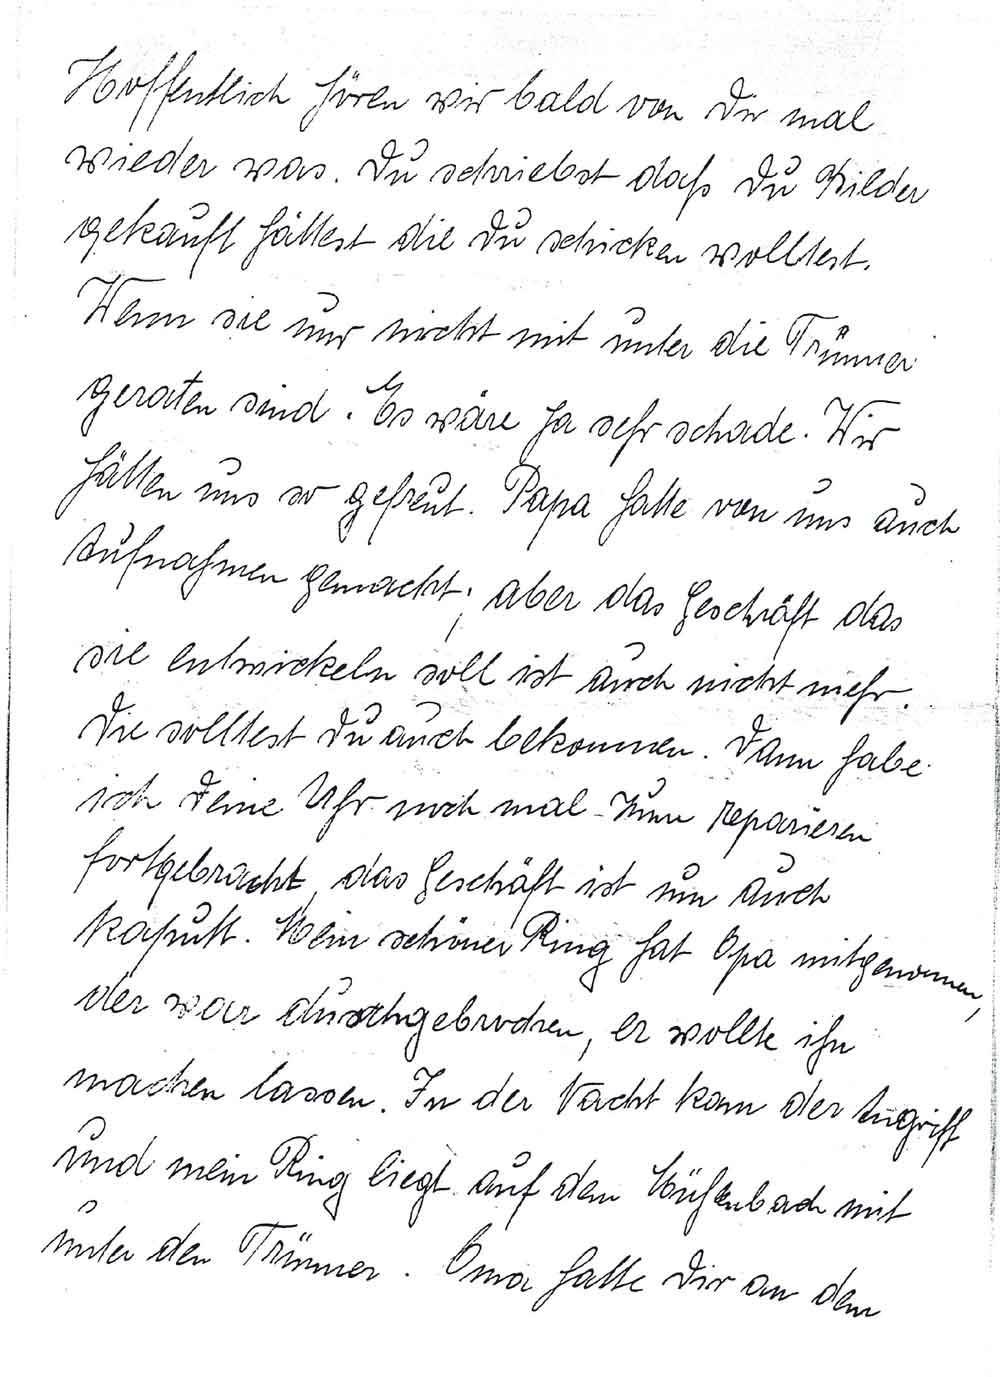 Hoffentlich hören wir bald von Dir mal
wieder was. Du schriebst daß Du Bilder
gekauft hättest die Du schicken wolltest.
Wenn sie nur nicht mit unter die Trümmer
geraten sind. Es wäre ja sehr schade. Wir
hätten uns so gefreut. Papa hatte von uns auch
Aufnahmen gemacht, aber das Geschäft das
sie entwickeln soll ist auch nicht mehr.
Die solltest Du auch bekommen. Dann habe
ich Deine Uhr noch mal zum reparieren
fortgebracht, das Geschäft ist nun auch
kaputt. Mein schöner Ring hat Opa mitgenommen,
der war durchgebrochen, er wollte ihn
machen lassen. In der Nacht kam der Angriff
und mein Ring liegt auf dem mit
unter den Trümmer. Oma hatte Dir an dem